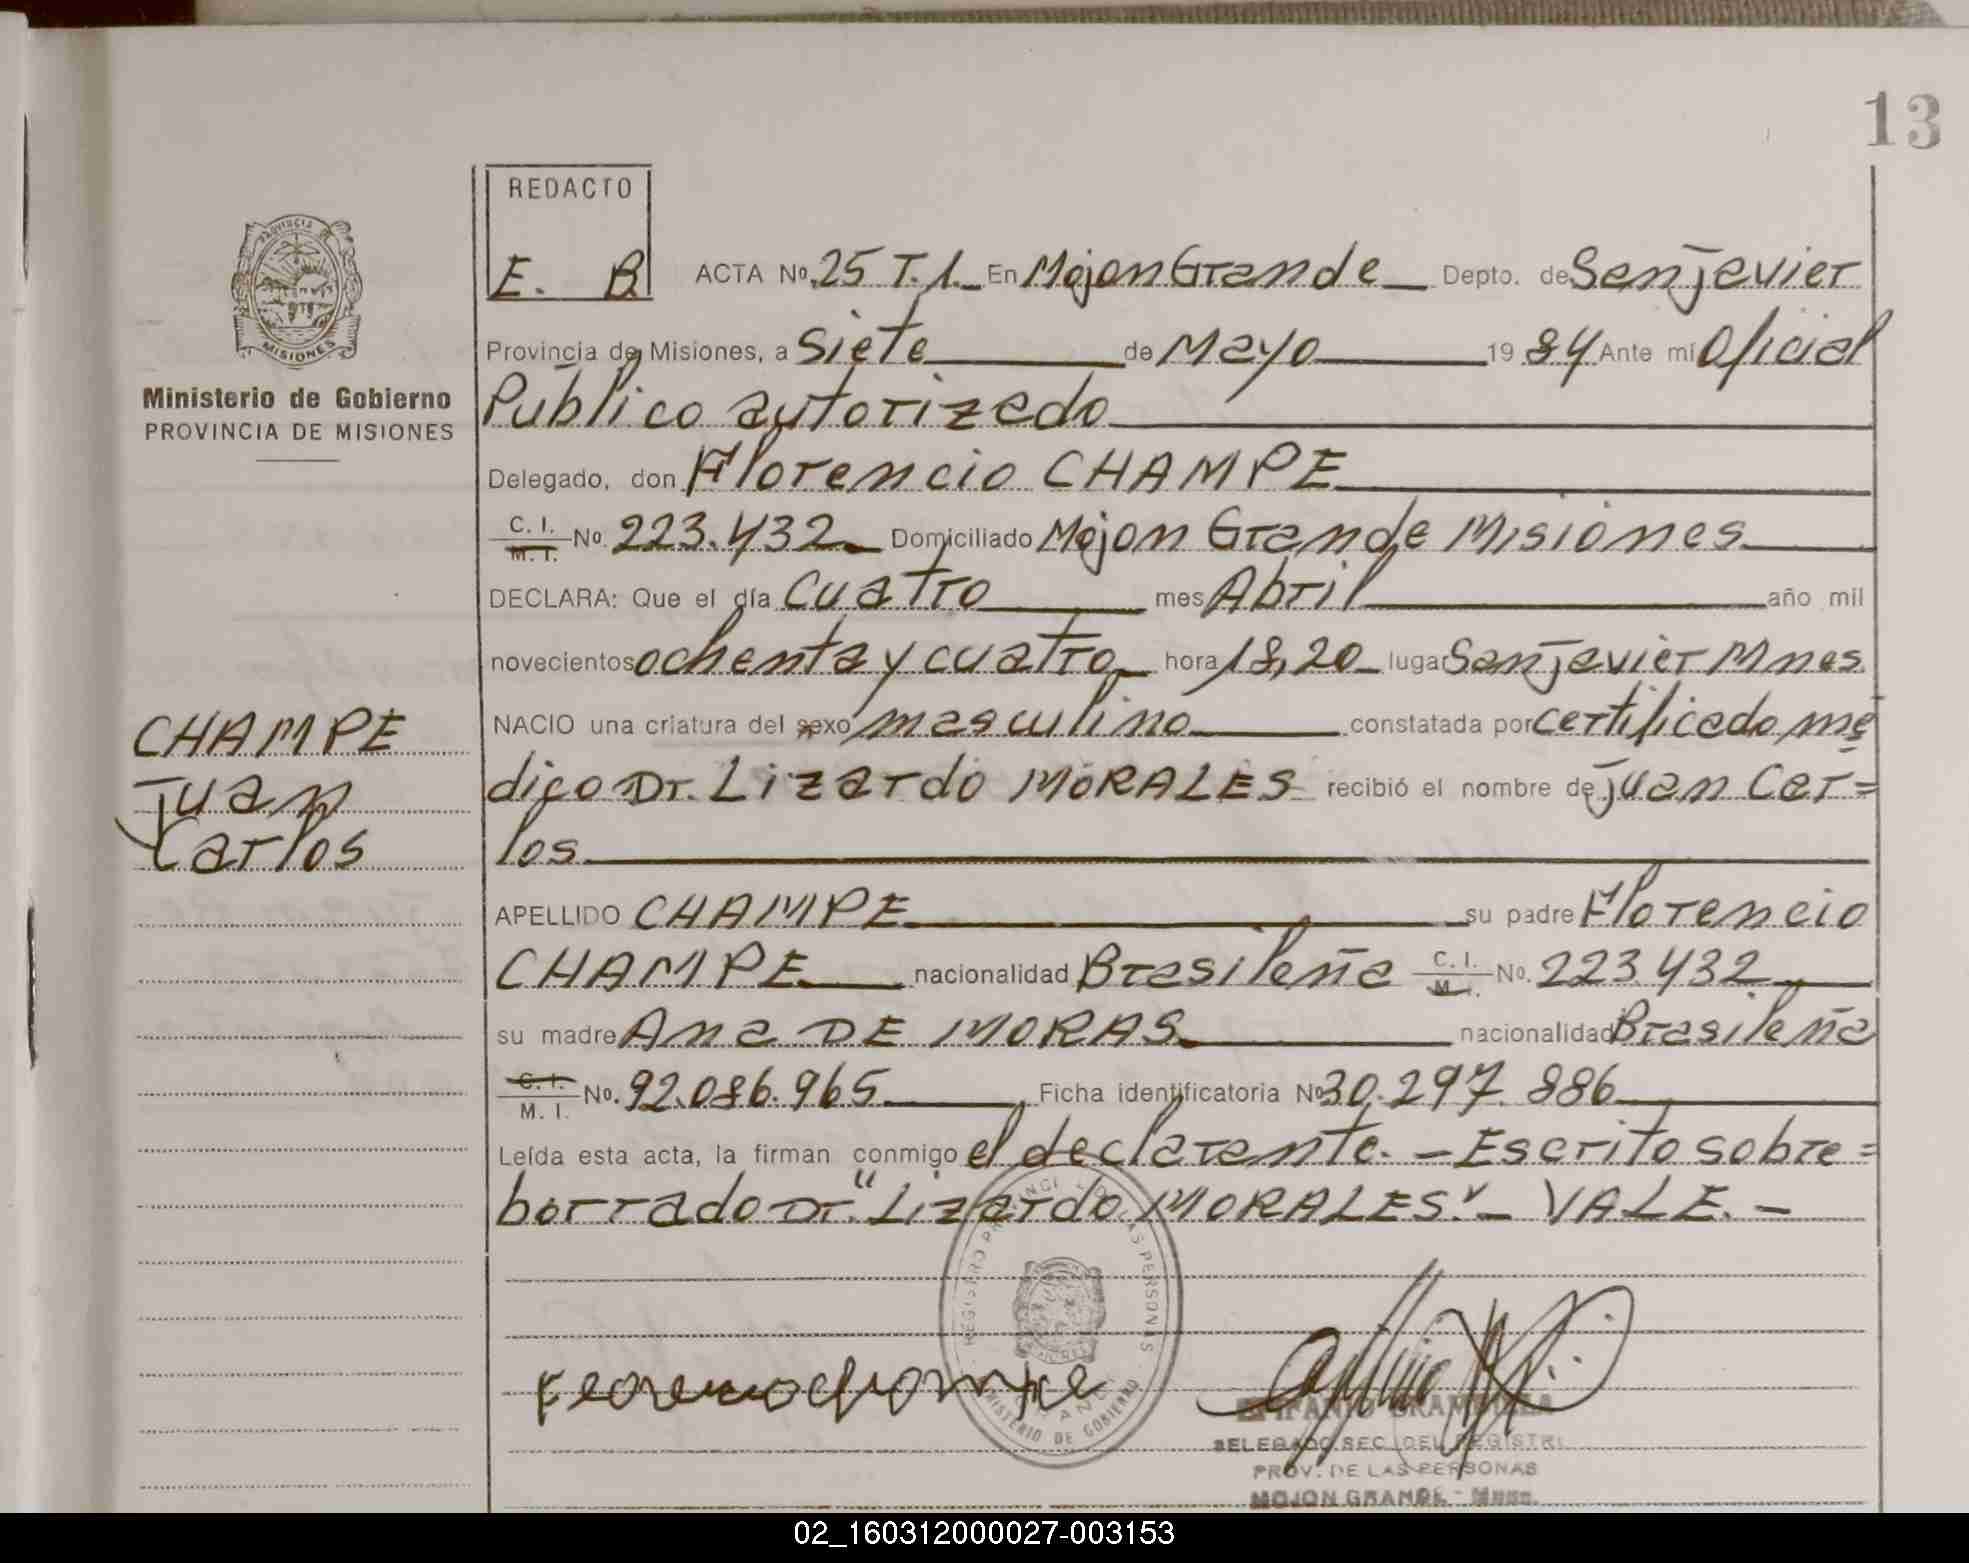 13
REDACTO
E. B
PROVINCIA DE
MISIONES
Ministerio de Gobierno
PROVINCIA DE MISIONES
ACTA No. 25 T.1. En Mojon Grande Depto. de San javier
Provincia de Misiones, a Siete de Mayo 1984 Ante mi Oficial
Público autorizado
Delegado, don Florencio CHAMPE
C. I. M. I. No. 223.432 Domiciliado Mojon Grande Misiones
DECLARA: Que el día cuatro mes Abril año mil
novecientos ochenta y cuatro hora 18,20 lugar San javier Mnes.
NACIO una criatura del sexo masculino constatada por certificado mé
dico Dr. Lizardo MORALES recibió el nombre de juan Car=
los
CHAMPE
juan
Carlos
APELLIDO CHAMPE su padre Florencio
CHAMPE nacionalidad Brasileña C. I. M. I. No. 223.432
su madre Ana DE MORAS nacionalidad Brasileña
C. I. M. I. No. 92.086.965 Ficha identificatoria No 30.297.886
Leída esta acta, la firman conmigo el declarante. - Escrito sobre=
borrado Dr. "Lizardo MORALES" - VALE. -
REGISTRO PROVINCIAL DE LAS PERSONAS
MINISTERIO DE GOBIERNO
DELEGADO SEC. DEL REGISTR
PROV. DE LAS PERSONAS
MOJON GRANDE - Mnes.
02_160312000027-003153